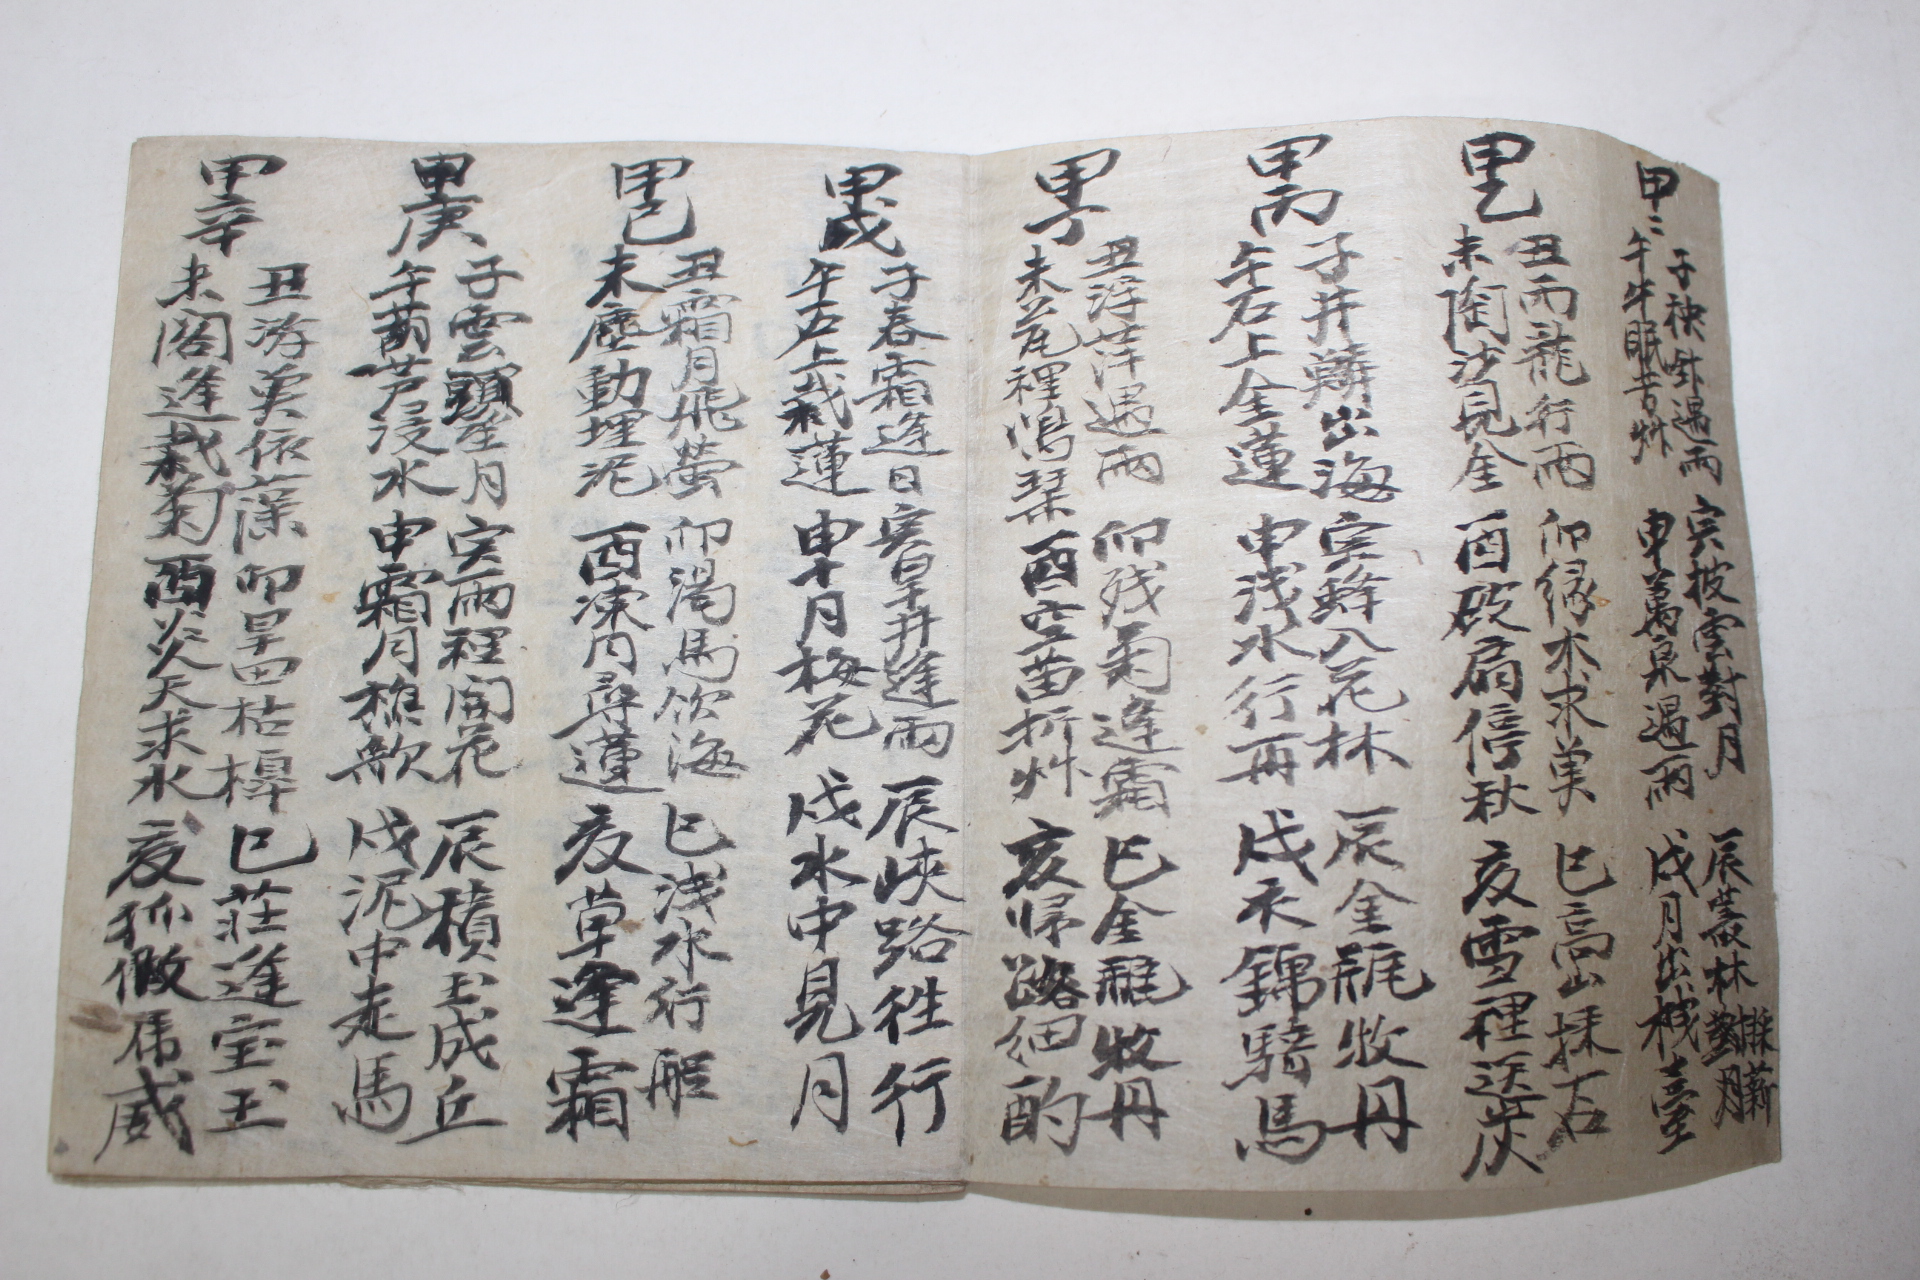 甲二
子秧針遇雨 寅披雲對月 辰叢林對月 採薪
午牛眠芳草 申萬泉遇雨 戌月出栈臺
甲乙
丑雨龍行雨 卯緣木求魚 巳高山採石
未陶沙見金 酉破扇信秋 亥雪裡送炭
甲丙
子井鱗出海 寅蜂入花林 辰金瓶牧丹
午石上金蓮 申浅水行舟 戌衣錦騎馬
甲丁
丑浮萍遇雨 卯残菊逢霜 巳金雞牧丹
未花裡鳴琴 酉空苗折艸 亥歸路細酌
甲戊
子春霜逢日 寅旱井逢雨 辰峽路徃行
午石上栽蓮 申十月梅花 戌水中見月
甲己
丑霜月飛萤 卯渴馬飲海 巳浅水行船
未塵動埋泥 酉凍月尋蓮 亥草逢霜
甲庚
子雲頭望月 寅雨裡開花 辰積土成丘
午葫芦浸水 申霜月樵歌 戌泥中走馬
甲辛
丑游魚依藻 卯旱田枯槔 巳莊逢宝玉
未閣逢栽菊 酉炎天求氷 亥狐假虎威